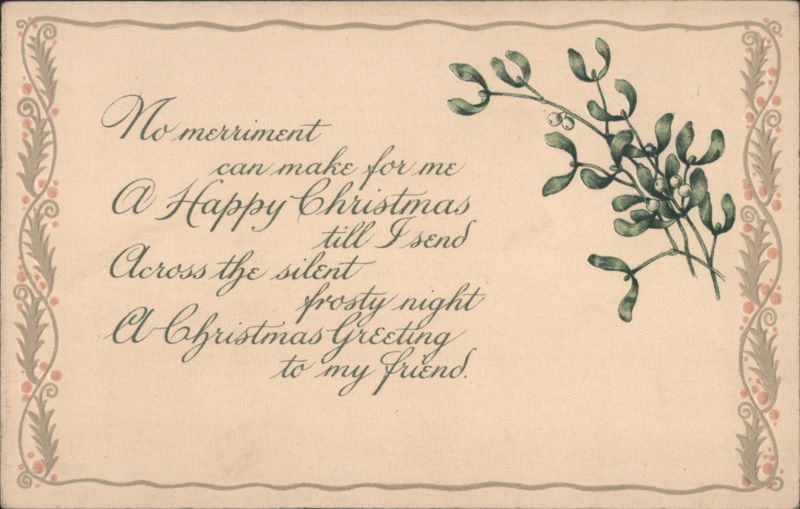 No merriment
can make for me
A Happy Christmas
till I send
Across the silent
frosty night
A Christmas Greeting
to my friend.